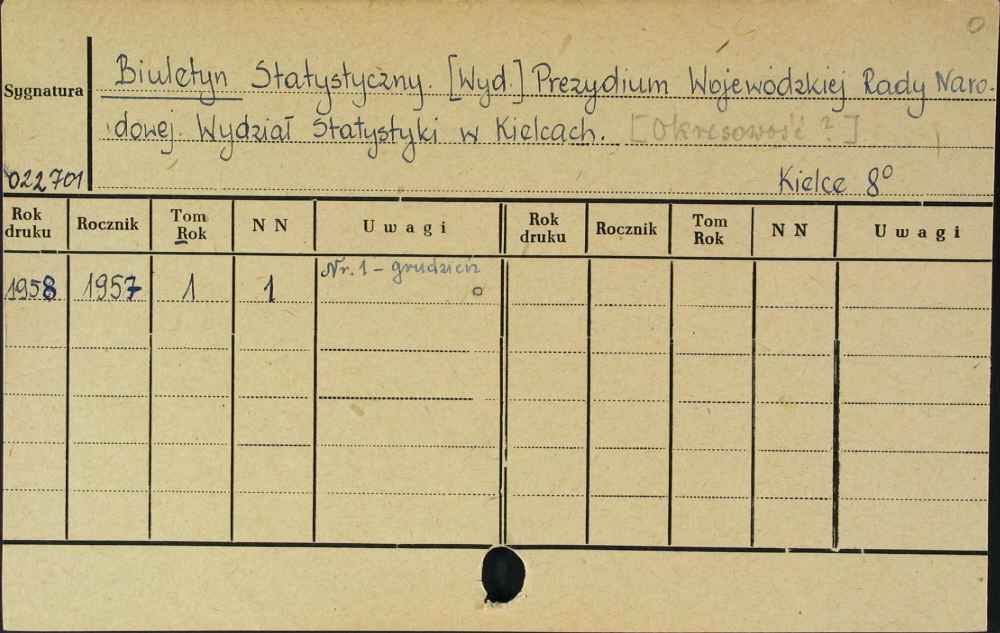 0
Sygnatura
Biuletyn Statystyczny. [Wyd.] Prezydium Wojewódzkiej Rady Naro-
dowej. Wydział Statystyki w Kielcach. [Okresowość ?]
022701
Kielce 8°
Rok druku Rocznik Tom Rok N N Uwagi Rok druku Rocznik Tom Rok N N Uwagi
Nr. 1 - grudzień
1958 1957 1 1